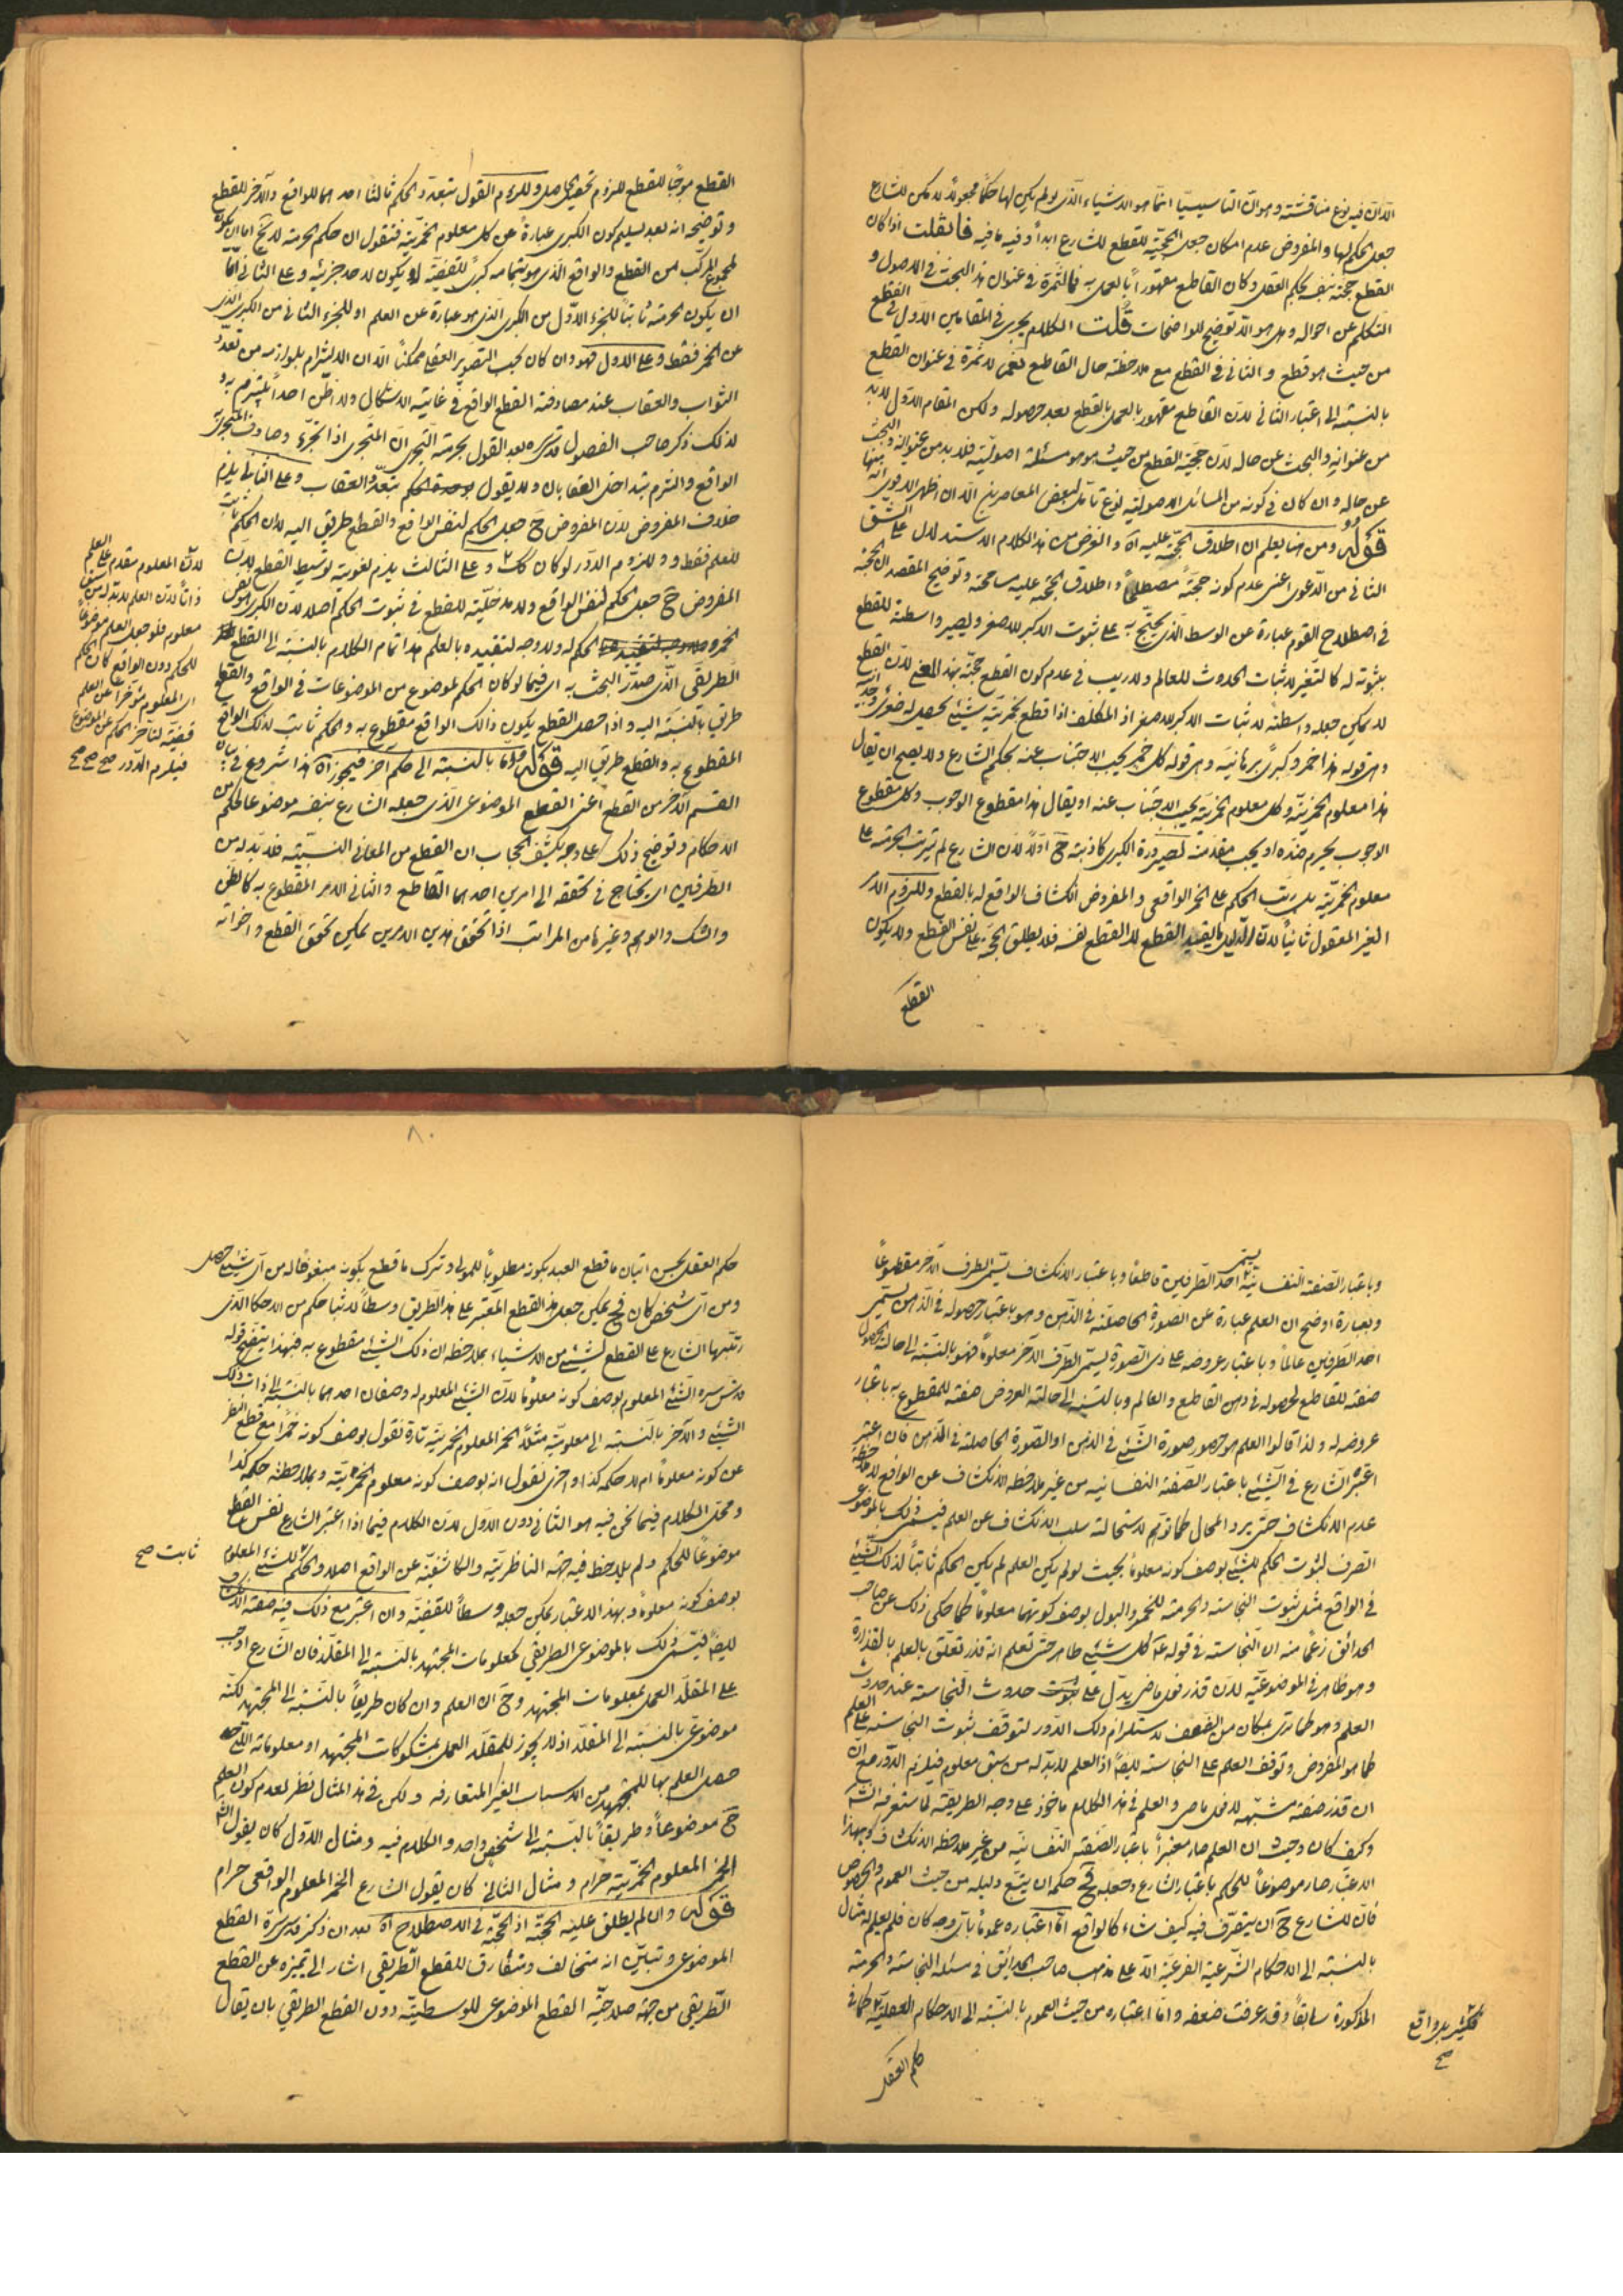 الّا انّ فيه نوع مناقشة وهو انّ التاسيسيّات انّما هو الاشياء الّذى لو لم يكن لها حكما مجعولا لا يمكن للشارع
جعل الحكم لها والمفروض عدم امكان جعل الحجّية للقطع للشارع ابداً وفيه ما فيه فان قلت اذا كان
القطع حجّة بنفسه بحكم العقل وكان القاطع مقهوراً بالعمل به فما الثمرة فى عنوان هذا البحث فى الاصول و
التكلم عن احواله وهل هو الّا توضيح للواضحات قلت الكلام يجرى فى المقامين الاوّل فى القطع
من حيث هو قطع والثانى فى القطع مع ملاحظة حال القاطع فنعم لا ثمرة فى عنوان القطع
بالنسبة الى اعتبار الثانى لانّ القاطع مقهور بالعمل بالقطع بعد حصوله ولكن المقام الاوّل لا بد
من عنوانه والبحث عن حاله لانّ حجّية القطع من حيث هو هو مسئلة اصوليّة فلا بد من عنوانه والبحث
عن حاله وان كان فى كونه من المسائل الاصوليّة نوع تأمّل لبعض المعاصرين الّا ان اظهر الاقوى انّه منها
قوله ومن هنا يعلم ان اطلاق الحجّة عليه آه والغرض من هذا الكلام الاستدلال على الشقّ
الثانى من الدّعوى اعنى عدم كونه حجّةً مصطلحاً واطلاق الحجّة عليه مسامحة وتوضيح المقصد ان الحجّة
فى اصطلاح القوم عبارة عن الوسط الّذى يحتجّ به على ثبوت الاكبر للاصغر ويصير واسطة للقطع
بثبوته له كالتغيّر لاثبات الحدوث للعالم ولا ريب فى عدم كون القطع حجّة بهذا المعنى لانّ القطع
لا يمكن جعله واسطة لاثبات الاكبر للاصغر اذ المكلّف اذا قطع بخمريّة شيئ يحصل له صغرى وجدانيّة
وهى قوله هذا خمر وكبرى برهانيّة وهى قوله كل خمر يجب الاجتناب عنه بحكم الشارع ولا يصح ان يقال
هذا معلوم الخمريّة وكل معلوم الخمرية يجب الاجتناب عنه او يقال هذا مقطوع الوجوب وكل مقطوع
الوجوب يحرم ضدّه او يجب مقدّمته لصيرورة الكبرى كاذبة ح اولاً لانّ الشارع لم يترتب الحرمة على
معلوم الخمريّة بل رتّب الحكم على الخمر الواقعى والمفروض انكشاف الواقع له بالقطع وللزوم الامر
الغير المعقول ثانياً لانّ الدليل ما يفيد القطع لا القطع نفسه فلا يطلق الحجّة على نفس القطع ولا يكون
القطع
القطع موجباً للقطع للزوم تحصيل الحاصل وللزوم القول بتعدّد الحكم ثالثا احدهما للواقع والآخر للقطع
وتوضيحه انه بعد تسليم كون الكبرى عبارةً عن كل معلوم الخمريّة فنقول ان حكم الحرمة لا يخ امّا ان يكون
لمجموع المركّب من القطع والواقع الّذى هو بتمامه كبرىً للقضيّة او يكون لاحد جزئيه وعلى الثانى امّا
ان يكون الحرمة ثابتاً للجزء الاوّل من الكبرى الّذى هو عبارة عن العلم او للجزء الثانى من الكبرى الّذى
عن الخمر فقط وعلى الاول فهو وان كان بحسب التصوير العقلى ممكناً الّا ان الالتزام بلوازمه من تعدّد
الثواب والعقاب عند مصادفة القطع الواقع فى غاية الاشكال ولا اظنّ احداً يلتزم به و
لذلك ذكر صاحب الفصول قدّس سره بعد القول بحرمة التّجرى انّ المتجرى اذا تجرّء وصادف التجرى
الواقع والتزم بتداخل العقابان ولا يقول بوحدة الحكم بتعدّد العقاب وعلى الثانى يلزم
خلاف المفروض لانّ المفروض ح جعل الحكم لنفس الواقع والقطع طريق اليه لا ان الحكم ثابت
للعلم فقط ودللزوم الدّور لو كان كك وعلى الثالث يلزم لغوية توسّط القطع لانّ
المفروض ح جعل الحكم لنفس الواقع ولا مدخليّة للقطع فى ثبوت الحكم اصلا لانّ الكبرى نفس
الخمر الحكم له ولا وجه لتقييده بالعلم هذا تمام الكلام بالنسبة الى القطع
الطّريقى الّذى صدّر البحث به اى فيما لو كان الحكم لموضوع من الموضوعات فى الواقع والقطع
طريق بالنسبة اليه واذا حصل القطع يكون ذلك الواقع مقطوع به والحكم ثابت لذلك الواقع
المقطوع به والقطع طريق اليه قوله وامّا بالنسبة الى حكم آخر فيجوز آه هذا شروع فى بيان
القسم الآخر من القطع اعنى القطع الموضوعى الّذى جعله الشارع بنفسه موضوعا لحكم من
الاحكام وتوضيح ذلك على وجه يكشف الحجاب ان القطع من المعانى النسبيّة فلا بدّ له من
الطرفين اى يحتاج فى تحققه الى امرين احدهما القاطع والثانى الامر المقطوع به كالظّن
والشك والوهم وغيرها من المراتب اذا تحقّق هذين الامرين يمكن تحقّق القطع واخواته
لانّ المعلوم مقدم على العلم
ذاتا لانّ العلم لا بد له من سبق
معلوم فلو جعل العلم موضوعا
للحكم دون الواقع كان الحكم
اى المعلوم مؤخرا عن العلم
قضيّة لتأخر الحكم عن الموضوع
فيلزم الدّور صح صح صح
وباعتبار الصّفة النّفسانيّة يسمّى احد الطّرفين قاطعاً وباعتبار الانكشاف يسمّى الطرف الآخر مقطوعاً
وبعبارة اوضح ان العلم عبارة عن الصورة الحاصلة فى الذّهن وهو باعتبار حصوله فى الذّهن يسمّى
احد الطّرفين عالماً وباعتبار عروضه على ذى الصّورة يسمّى الطّرف الآخر معلوماً فهو بالنّسبة الى حالة الحصول
صفة للقاطع لحصوله فى ذهن القاطع والعالم وبالنسبة الى حالة العروض صفة للمقطوع به باعتبار
عروضه له ولذا قالوا العلم هو حضور صورة الشّئ فى الذهن او الصّورة الحاصلة فى الذّهن فان اعتبر
اعتبره الشّارع فى الشّيئ باعتبار الصّفة النفسانيه من غير ملاحظه الانكشاف عن الواقع لا ملاحظه
عدم الانكشاف حتّى يرد المحال كما توهّم لاستحالة سلب الانكشاف عن العلم فيسمّى ذلك بالموضوعى
الصّرف لثبوت الحكم للشّيئ بوصف كونه معلوماً بحيث لو لم يكن العلم لم يكن الحكم ثابتاً لذلك الشّيئ
فى الواقع مثل ثبوت النّجاسة والحرمة للخمر والبول بوصف كونهما معلوماً كما حكى ذلك عن صاحب
الحدائق زعماً منه ان النّجاسة فى قوله ع كل شيئ طاهر حتّى تعلم انه قذر تعلّق بالعلم بالقذارة
وهو ظاهر فى الموضوعيّة لانّ قذر فعل ماض يدلّ على حدوث النّجاسة عند حدوث
العلم وهو كما ترى بمكان من الضعف لاستلزام ذلك الدّور لتوقّف ثبوت النجاسة على العلم
كما هو المفروض وتوقف العلم على النجاسة ايضاً اذ العلم لا بدّ له من سبق معلوم فيلزم الدّور مع انّ
ان قذر صفة مشبّهه لا فعل ماضى والعلم فى هذا الكلام ماخوذ على وجه الطريقيّة كما ستعرفه انش
وكيف كان وحيث ان العلم صار معتبراً باعتبار الصّفة النّفسانيّه من غير ملاحظه الانكشاف وبهذا
الاعتبار صار موضوعاً للحكم باعتبار الشارع وجعله فح حكمه ان يتبع دليله من حيث العموم والخصوص
فان للشارع ح ان يتصرّف فيه كيف شاء كالواقع امّا اعتباره عموماً باىّ وجه كان فلم يعلم له مثال
بالنسبة الى الاحكام الشّرعية الفرعيّة الّا على مذهب صاحب الحدائق فى مسئلة النجاسة والحرمة
المذكورة سابقاً وقد عرفت ضعفه وامّا اعتباره من حيث العموم بالنّسبة الى الاحكام العقليّة كما فى
فكثير بل واقع
صح
حكم العقل
٨٠
حكم العقل بحسن اتيان ما قطع العبد بكونه مطلوباً للمولى وترك ما قطع بكونه مبغوضا له من اىّ شيئ حصل
ومن اىّ شخص كان فح يمكن جعل هذا القطع المعتبر على هذا الطّريق وسطاً لاثبات حكم من الاحكام الذى
رتّبها الشارع على القطع لشيئ من الاشياء بملاحظه ان ذلك الشّيئ مقطوع به فبهذا يتضح قوله
قدّس سره الشّيئ المعلوم بوصف كونه معلوماً لانّ الشّيئ المعلوم له وصفان احدهما بالنّسبة الى ذات ذلك
الشّيئ والآخر بالنّسبة الى معلوميّته مثلاً الخمر المعلوم الخمريّة تارة نقول بوصف كونه خمراً مع قطع النظر
عن كونه معلوماً ام لا حكمه كذا واخرى نقول انه بوصف كونه معلوم الخمريّة وبملاحظته حكمه كذا
ومحل الكلام فيما نحن فيه هو الثانى دون الاوّل لانّ الكلام فيما اذا اعتبر الشارع نفس القطع
موضوعاً للحكم ولم يلاحظ فيه جهة الناظريّة والكاشفيّة عن الواقع اصلا والحكم للشّيئ المعلوم
ثابت صح
بوصف كونه معلوماً وبهذا الاعتبار يمكن جعله وسطاً للقضيّة وان اعتبر مع ذلك فيه صفة الكشف
ايضاً فيسمّى ذلك بالموضوعى الطريقى كمعلومات المجتهد بالنّسبة الى المقلّد فان الشارع اوجب
على المقلّد العمل بمعلومات المجتهد وح ان العلم وان كان طريقاً بالنّسبة الى المجتهد لكنّه
موضوعىّ بالنسبة الى المقلّد اذ لا يجوز للمقلّد العمل بمشكوكات المجتهد او معلوماته الّتى
حصل العلم بها للمجتهد من الاسباب الغير المتعارفه ولكن فى هذا المثال نظر لعدم كون العلم
ح موضوعاً وطريقاً بالنّسبة الى شخص واحد والكلام فيه ومثال الاوّل كان يقول الشّارع
الخمر المعلوم الخمريّة حرام ومثال الثانى كان يقول الشارع الخمر المعلوم الواقعى حرام
قوله وان لم يطلق عليه الحجّة اذ الحجّة فى الاصطلاح آه بعد ان ذكر قدّس سرّه القطع
الموضوعى وتبيّن انه متخالف ومتفارق للقطع الطّريقى اشار الى تميزه عن القطع
الطّريقى من جهة صلاحيّة القطع الموضوعى للوسطيّة دون القطع الطريقى بان يقال